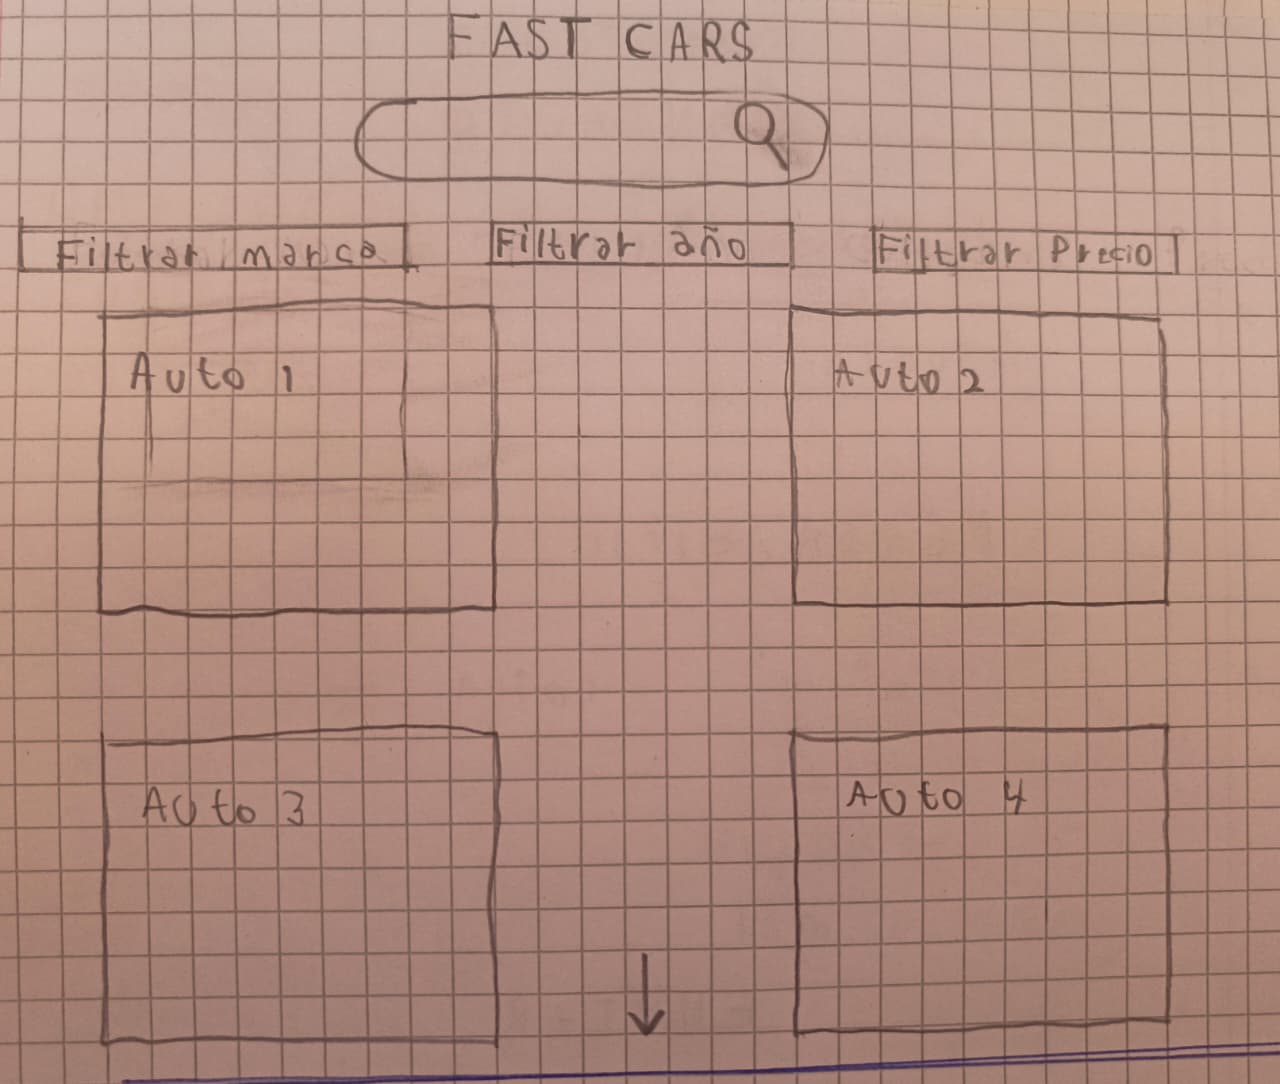 FAST CARS
Filtrar marca Filtrar año Filtrar Precio
Auto 1 Auto 2
Auto 3 Auto 4